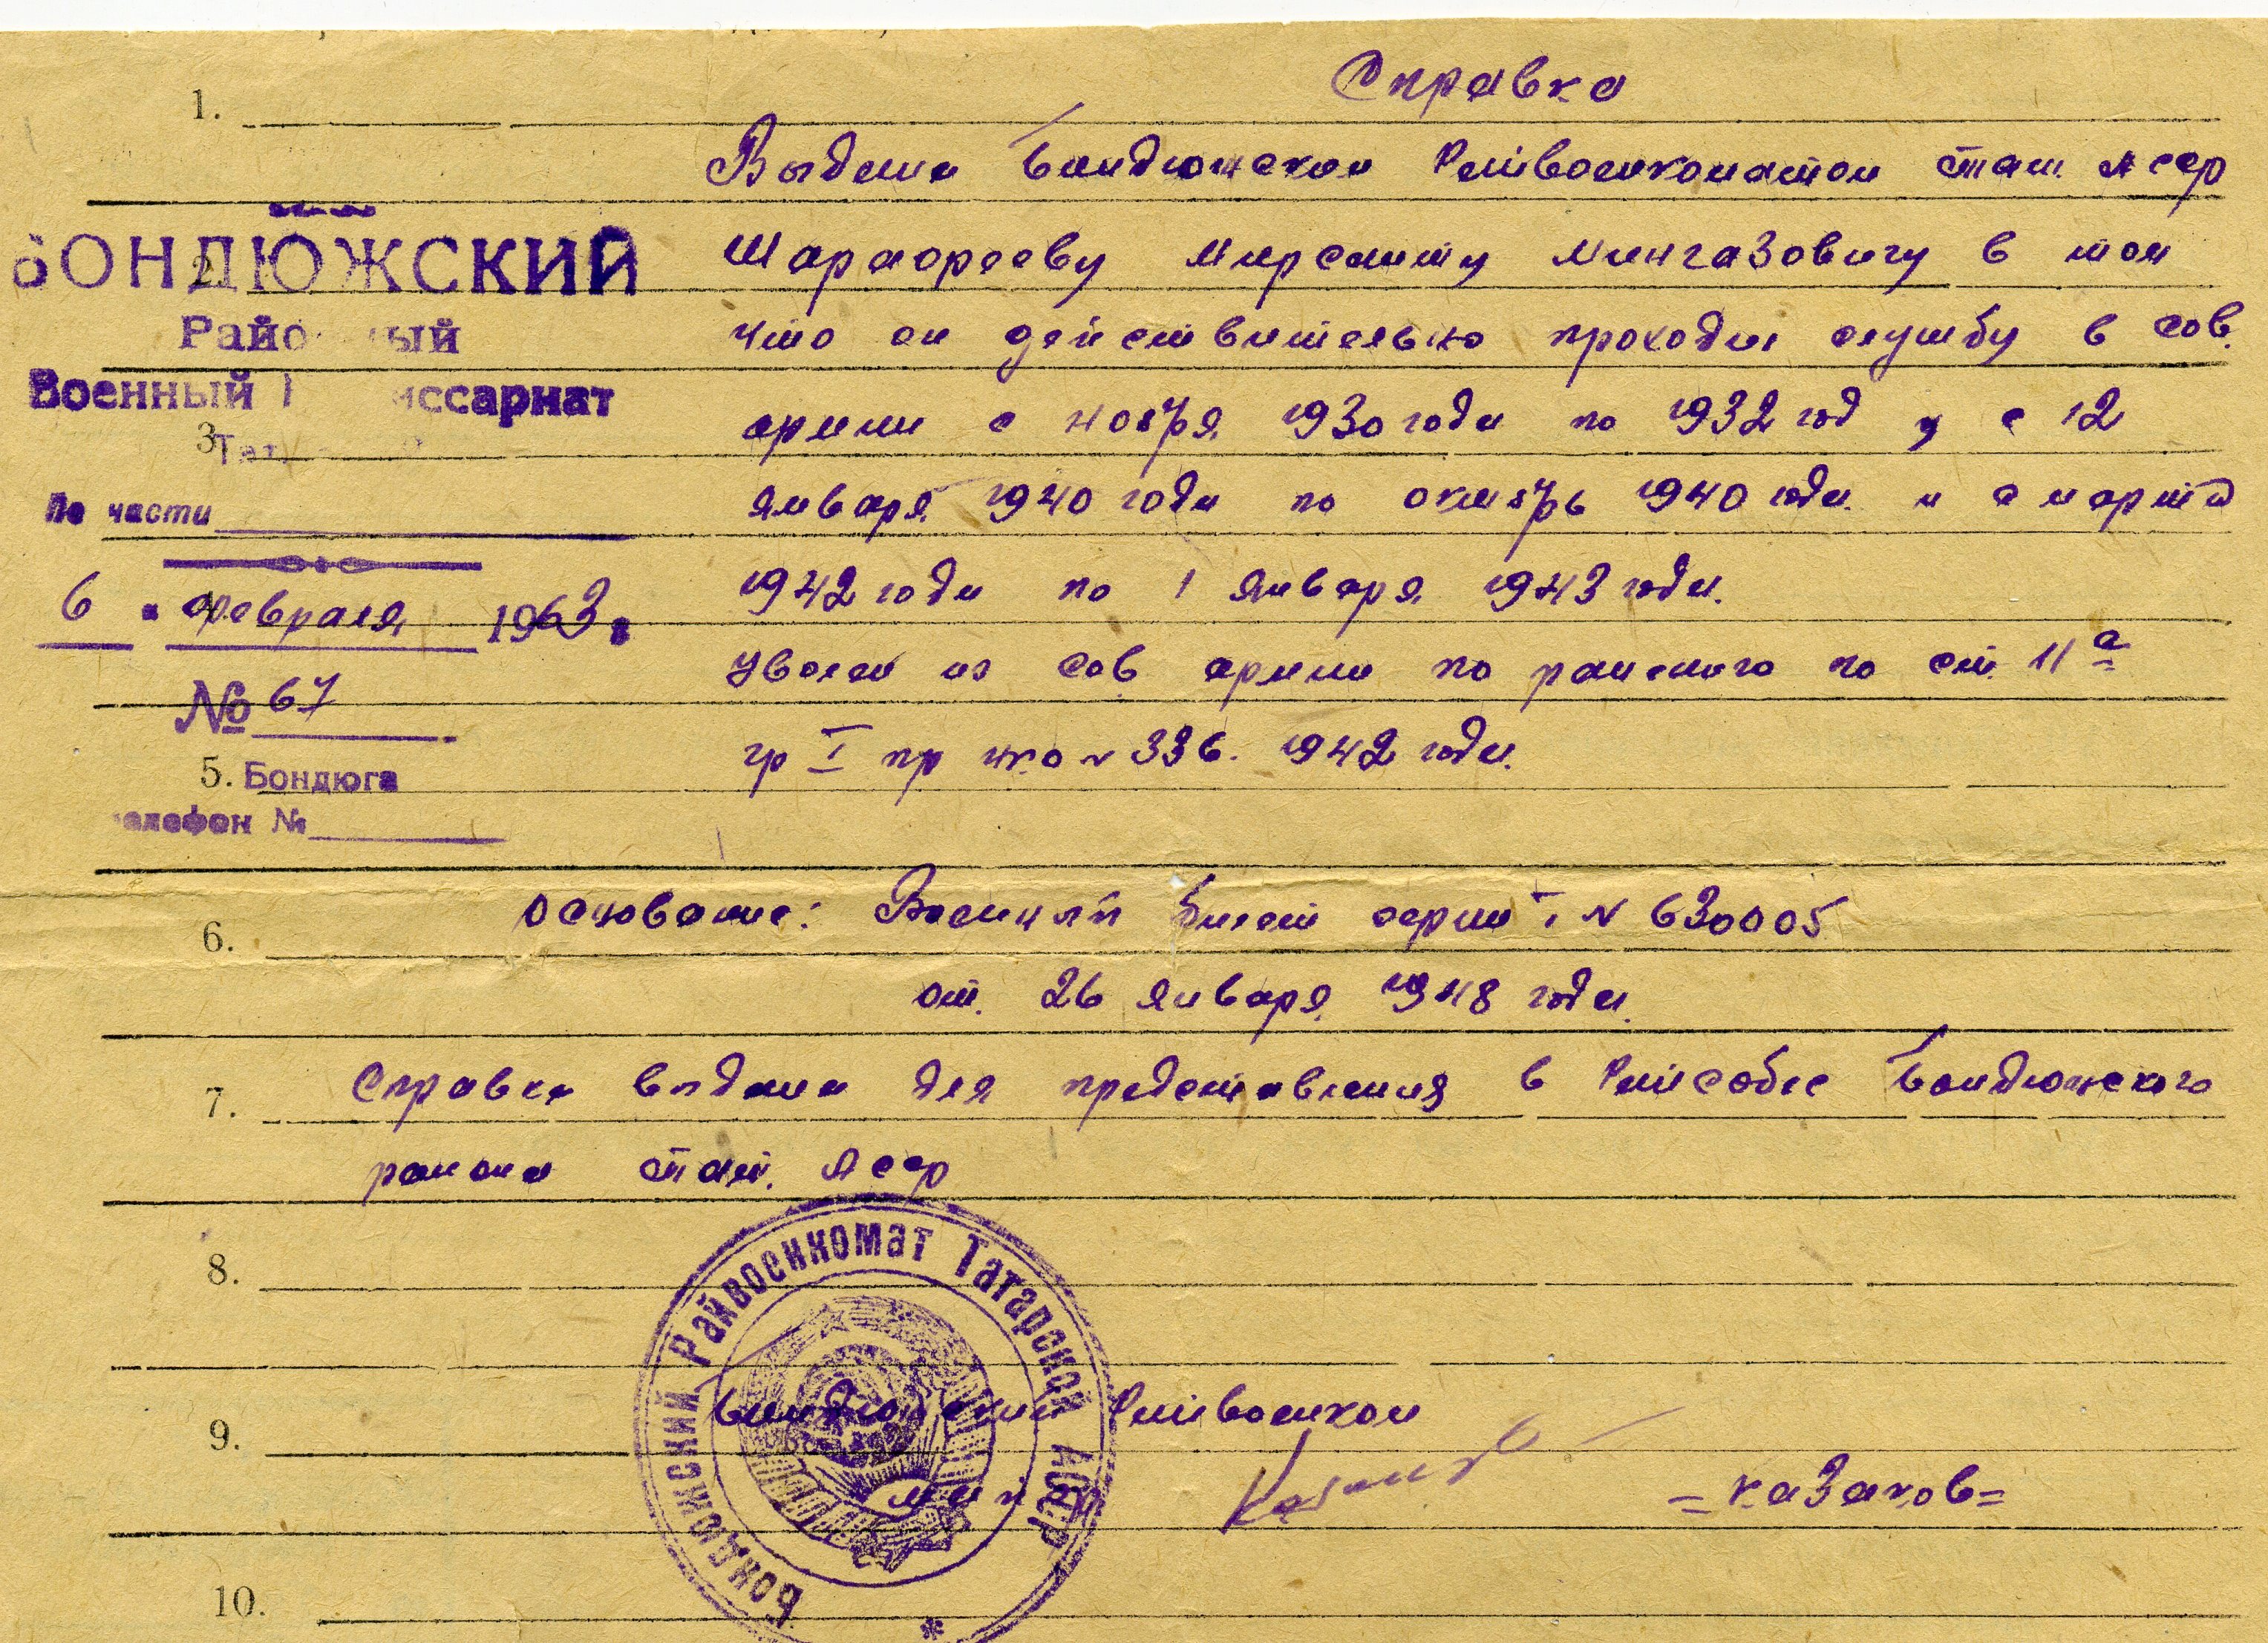 Справка
1.
Выдана Бондюжском Райвоенкоматом Тат. Асср
БОНДЮЖСКИЙ
2.
Шарафееву Мирсаиту Мингазовичу в том
Районный
что он действительно проходил службу в Сов.
Военный миссариат
армии с ноября 1930 года по 1932 год и с 12
3.
Тат
января 1940 года по октябрь 1940 года. и с марта
По части
1942 года по 1 января 1943 года.
6 " февраля 1963 г
4.
Уволен из Сов армии по ранению по ст. 11 а
№ 67
гр I пр нко № 336. 1942 года.
5. Бондюга
елефон №
6.
Основание: Военный билет серии № 630005
от. 26 января 1948 года.
7.
Справка выдана для представления в Райсобес Бондюжского
района Тат. Асср
8.
Бондюжский Райвоенкомат Татарской АССР *
Бондюжский Райвоенком
9.
= Казаков =
10.